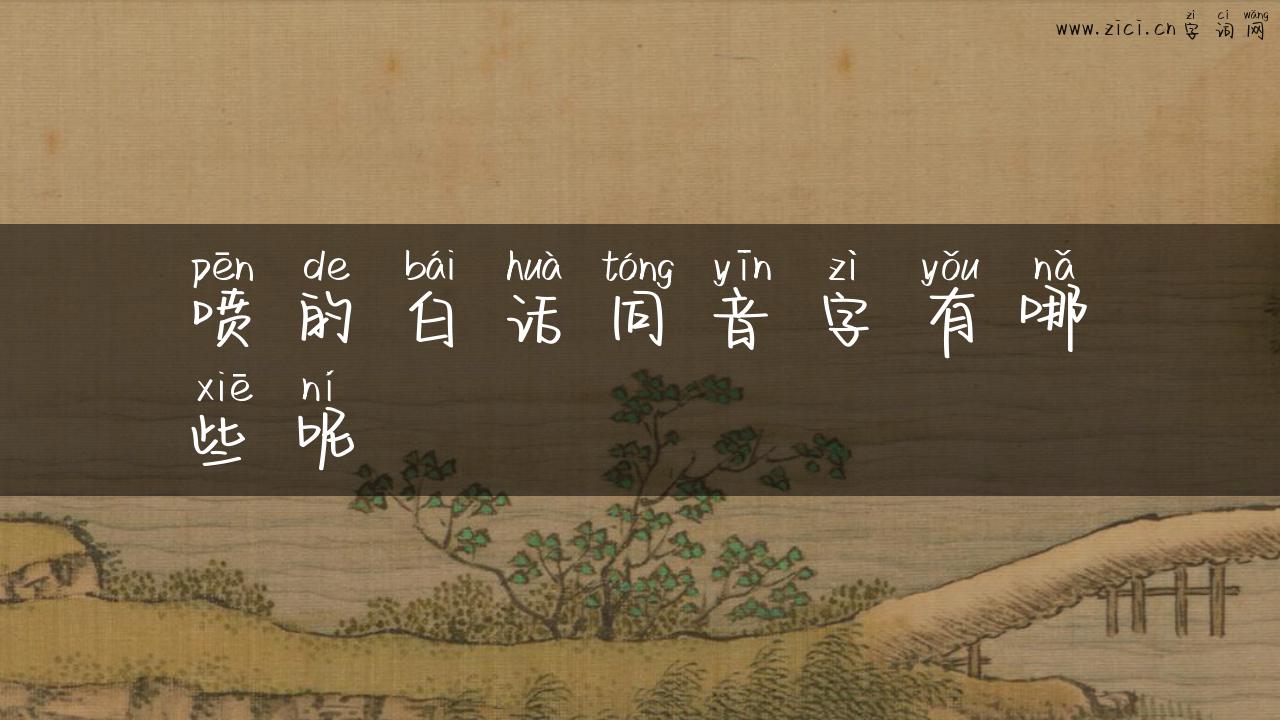 zì cí wǎng
www.zici.cn 字词网
pēn de bái huà tóng yīn zì yǒu nǎ
喷的白话同音字有哪
xiē ní
些呢